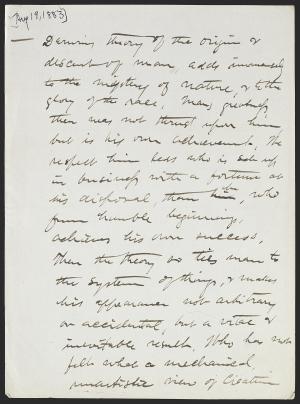 [Aug 19, 1883]
— Darwins theory of the origin &
descent of man adds immensely
to the mystery of nature, & to the
glory of the race. Mans greatness
then was not thrust upon him
but is his own achievement. We
respect him less who is set up
in business with a fortune at
his disposal, than him, who
from humble beginnings,
achieves his own success.
Then the theory so ties man to
the system of things, & makes
his appearance not arbitrary
or accidental, but a vital &
inevitable result. Who has not
felt what a mechanical,
inartistic view of Creation